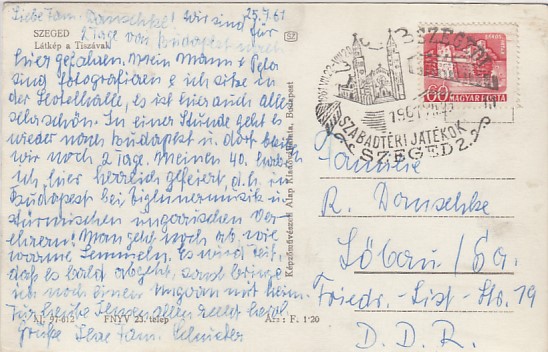 Liebe Fam. Damschke! Wir sind für
25.7.61
2 Tage von Budapest nach
SZEGED
Látkép a Tiszával
hier gefahren. Mein Mann & Helo
sing fotografieren & ich sitze in
der Hotelhalle, es ist hier auch alles
sehr schön. In einer Stunde geht es
wieder nach Budapest u. dort bleiben
wir noch 2 Tage. Meinen 40. habe
ich hier herrlich gefeiert, d. h. in
Budapest bei Zigeunermusik u.
stürmischen ungarischen Ver-
ehrern! Man geht noch ab, wie
warme Semmeln. Es wird Zeit,
daß es bald abgeht, sonst bringe
ich noch einen Ungarn mit heim.
Für heute Ihnen allen recht herzl.
Grüße Ilse Fam.
Al. 97-612
FNYV 23. telep
Ára: F. 1·20
Képzőművészeti Alap Kiadóvállalata, Budapest
SZEGED
SZABADTÉRI JÁTÉKOK
SZEGED 2.
60 MAGYAR POSTA
Familie
R. Damschke
Löbau / Sa.
Friedr.-List-Str. 19
D. D. R.